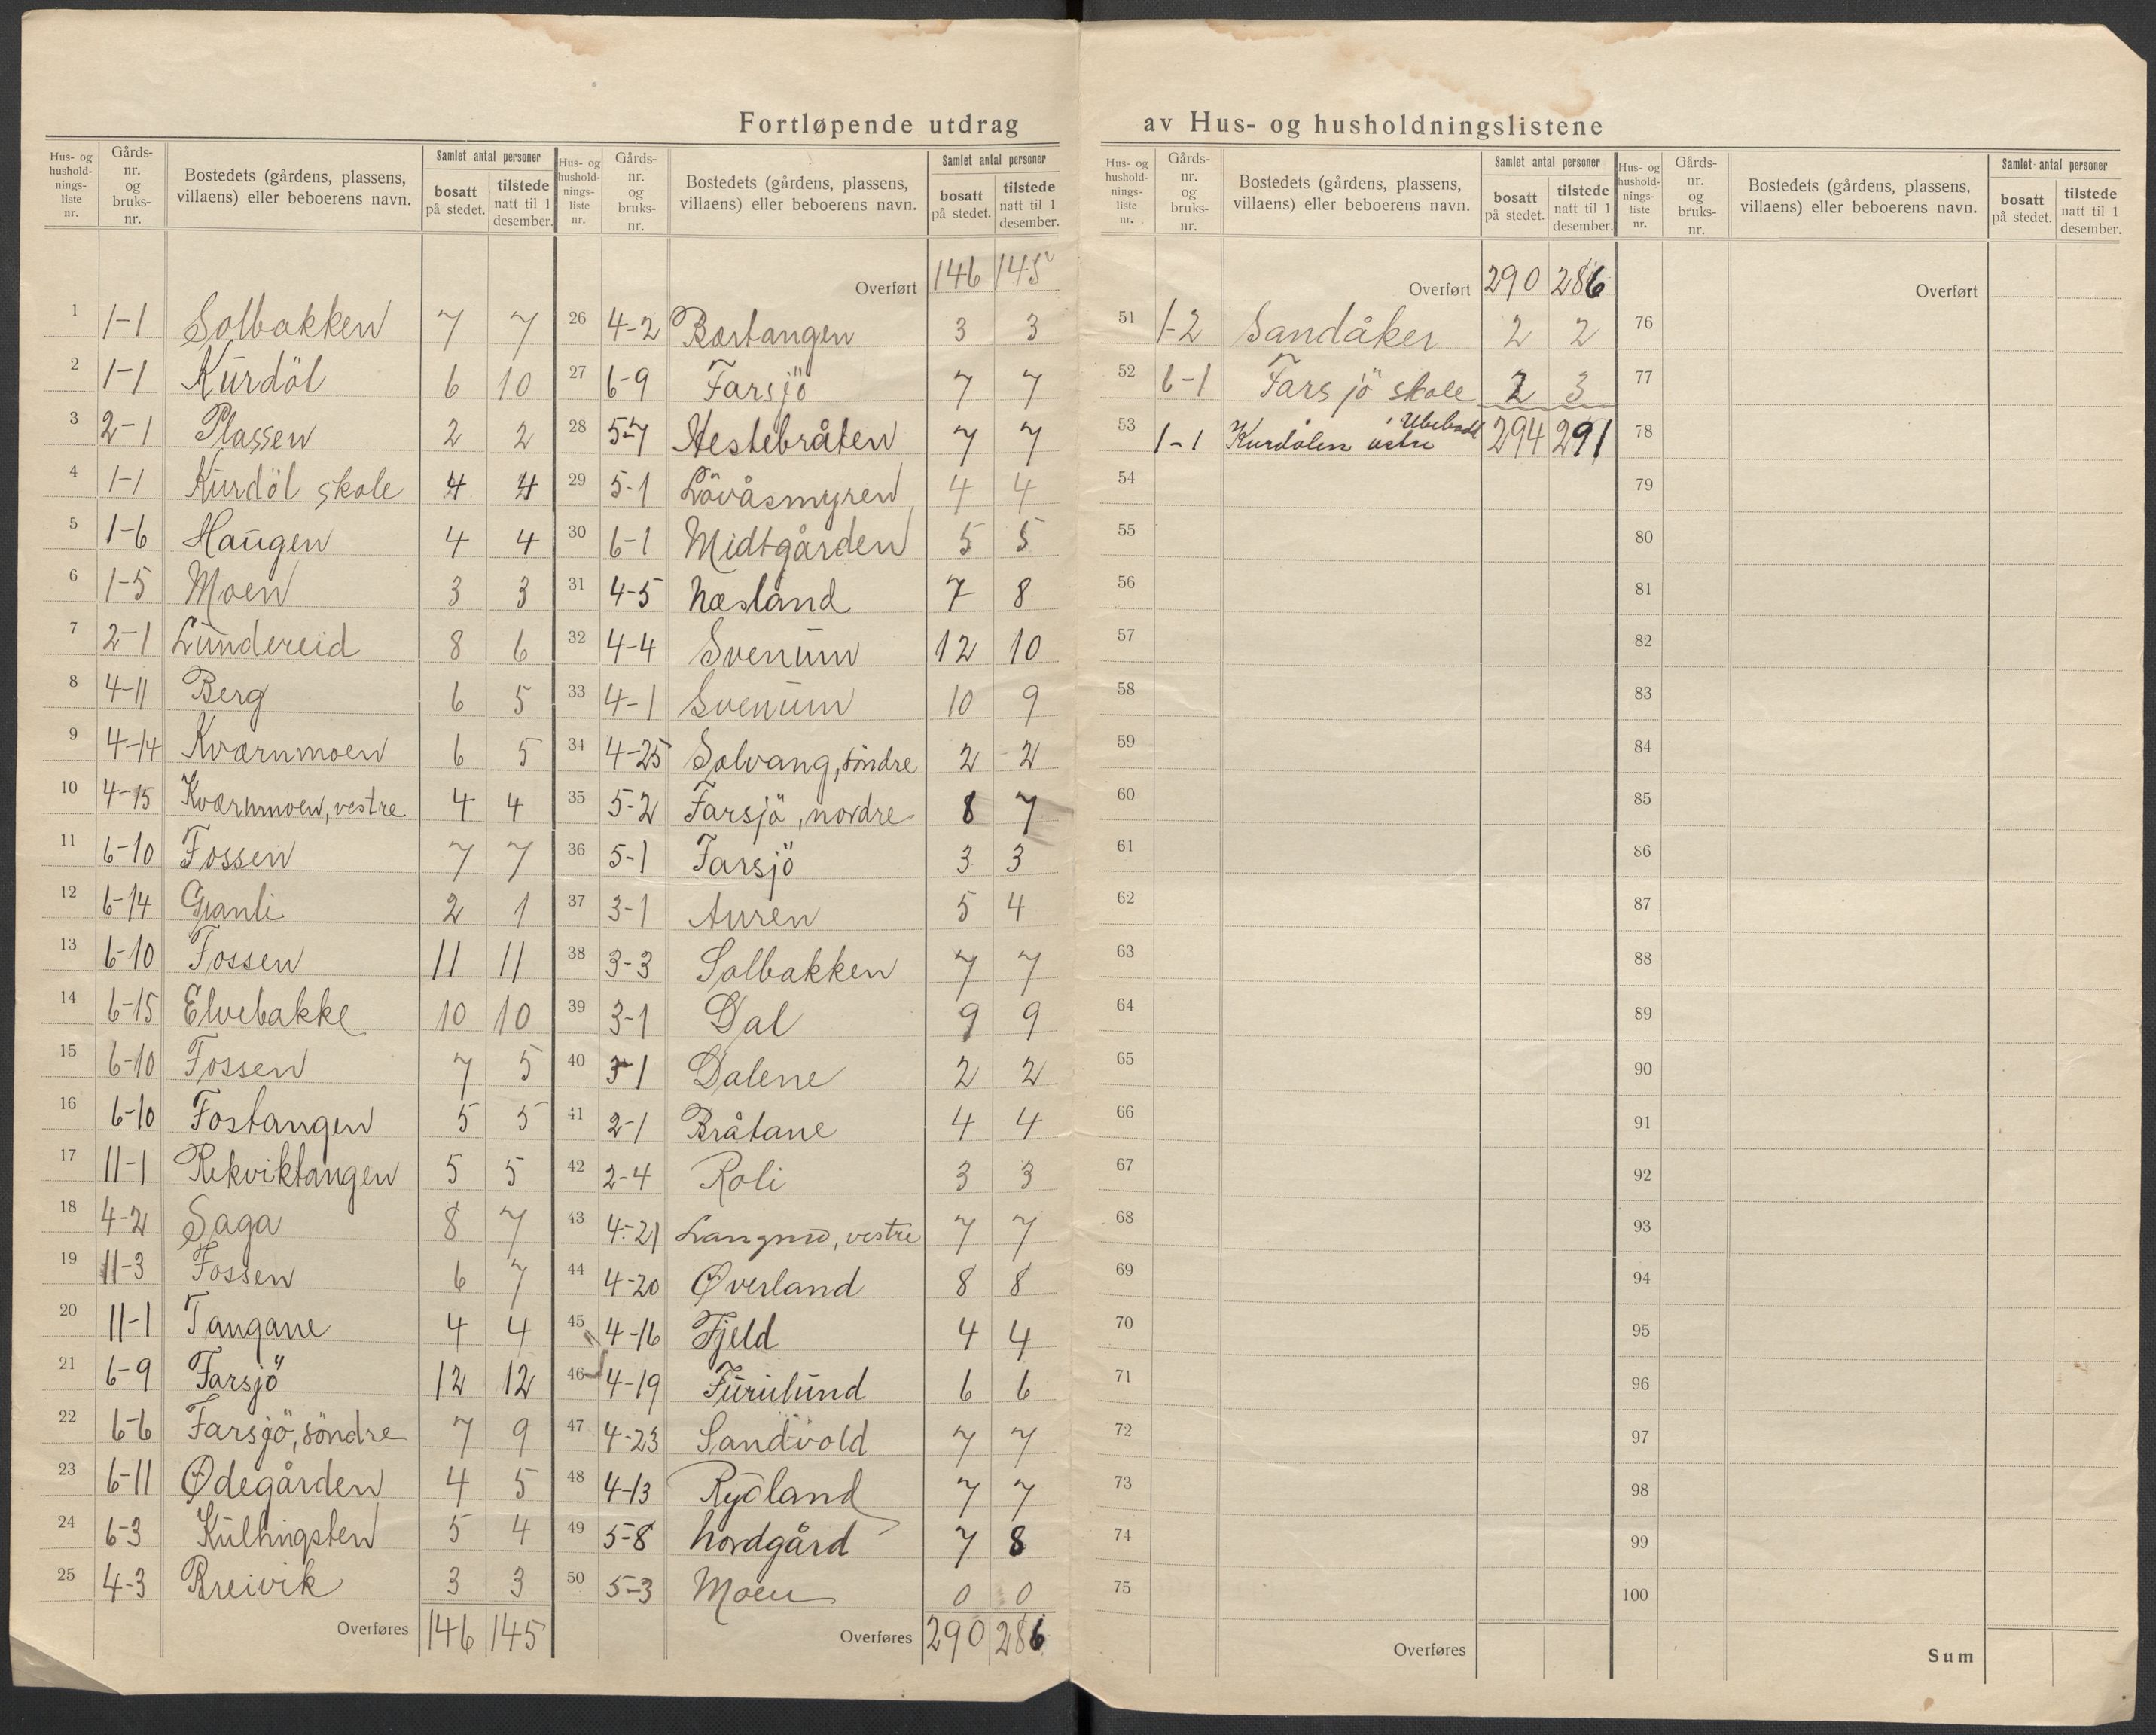 Fortløpende utdrag av Hus- og husholdningslistene
Hus- og husholdnings-liste nr. | Gårds-nr. og bruks-nr. | Bostedets (gårdens, plassens, villaens) eller beboerens navn. | Samlet antal personer | bosatt på stedet. | tilstede natt til 1 desember.
1 1-1 Solbakken 7 7
2 1-1 Kurdöl 6 10
3 2-1 Plassen 2 2
4 1-1 Kurdöl skole 4 4
5 1-6 Haugen 4 4
6 1-5 Moen 3 3
7 2-1 Lundereid 8 6
8 4-11 Berg 6 5
9 4-14 Kværnmoen 6 5
10 4-15 Kværnmoen, vestre 4 4
11 6-10 Fossen 7 7
12 6-14 Granli 2 1
13 6-10 Fossen 11 11
14 6-15 Elvebakke 10 10
15 6-10 Fossen 7 5
16 6-10 Fostangen 5 5
17 11-1 Rekviktangen 5 5
18 4-2 Saga 8 7
19 11-3 Fossen 6 7
20 11-1 Tangane 4 4
21 6-9 Farsjö 12 12
22 6-6 Farsjö, söndre 7 9
23 6-11 Ødegården 4 5
24 6-3 5 4
25 4-3 Breivik 3 3
Overføres 146 145
Hus- og husholdnings-liste nr. | Gårds-nr. og bruks-nr. | Bostedets (gårdens, plassens, villaens) eller beboerens navn. | Samlet antal personer | bosatt på stedet. | tilstede natt til 1 desember.
Overført 146 145
26 4-2 Bæstangen 3 3
27 6-9 Farsjö 7 7
28 5-7 Hestebråten 7 7
29 5-1 Lövåsmyren 4 4
30 6-1 Midtgården 5 5
31 4-5 Næsland 7 8
32 4-4 Svenum 12 10
33 4-1 Svenum 10 9
34 4-25 Solvang, söndre 2 2
35 5-2 Farsjö, nordre 8 7
36 5-1 Farsjö 3 3
37 3-1 Auren 5 4
38 3-3 Solbakken 7 7
39 3-1 Dal 9 9
40 3-1 Dalene 2 2
41 2-1 Bråtane 4 4
42 2-4 Roli 3 3
43 4-21 Langmo, vestre 7 7
44 4-20 Øverland 8 8
45 4-16 Fjeld 4 4
46 4-19 Furulund 6 6
47 4-23 Sandvold 7 7
48 4-13 Rydland 7 7
49 5-8 Nordgård 7 8
50 5-3 Moen 0 0
Overføres 290 286
Hus- og husholdnings-liste nr. | Gårds-nr. og bruks-nr. | Bostedets (gårdens, plassens, villaens) eller beboerens navn. | Samlet antal personer | bosatt på stedet. | tilstede natt til 1 desember.
Overført 290 286
51 1-2 Sandåker 2 2
52 6-1 Farsjö skole 2 3
53 1-1 Kurdölen østre Ubebodd 294 291
54
55
56
57
58
59
60
61
62
63
64
65
66
67
68
69
70
71
72
73
74
75
Overføres
Hus- og husholdnings-liste nr. | Gårds-nr. og bruks-nr. | Bostedets (gårdens, plassens, villaens) eller beboerens navn. | Samlet antal personer | bosatt på stedet. | tilstede natt til 1 desember.
Overført
76
77
78
79
80
81
82
83
84
85
86
87
88
89
90
91
92
93
94
95
96
97
98
99
100
Sum